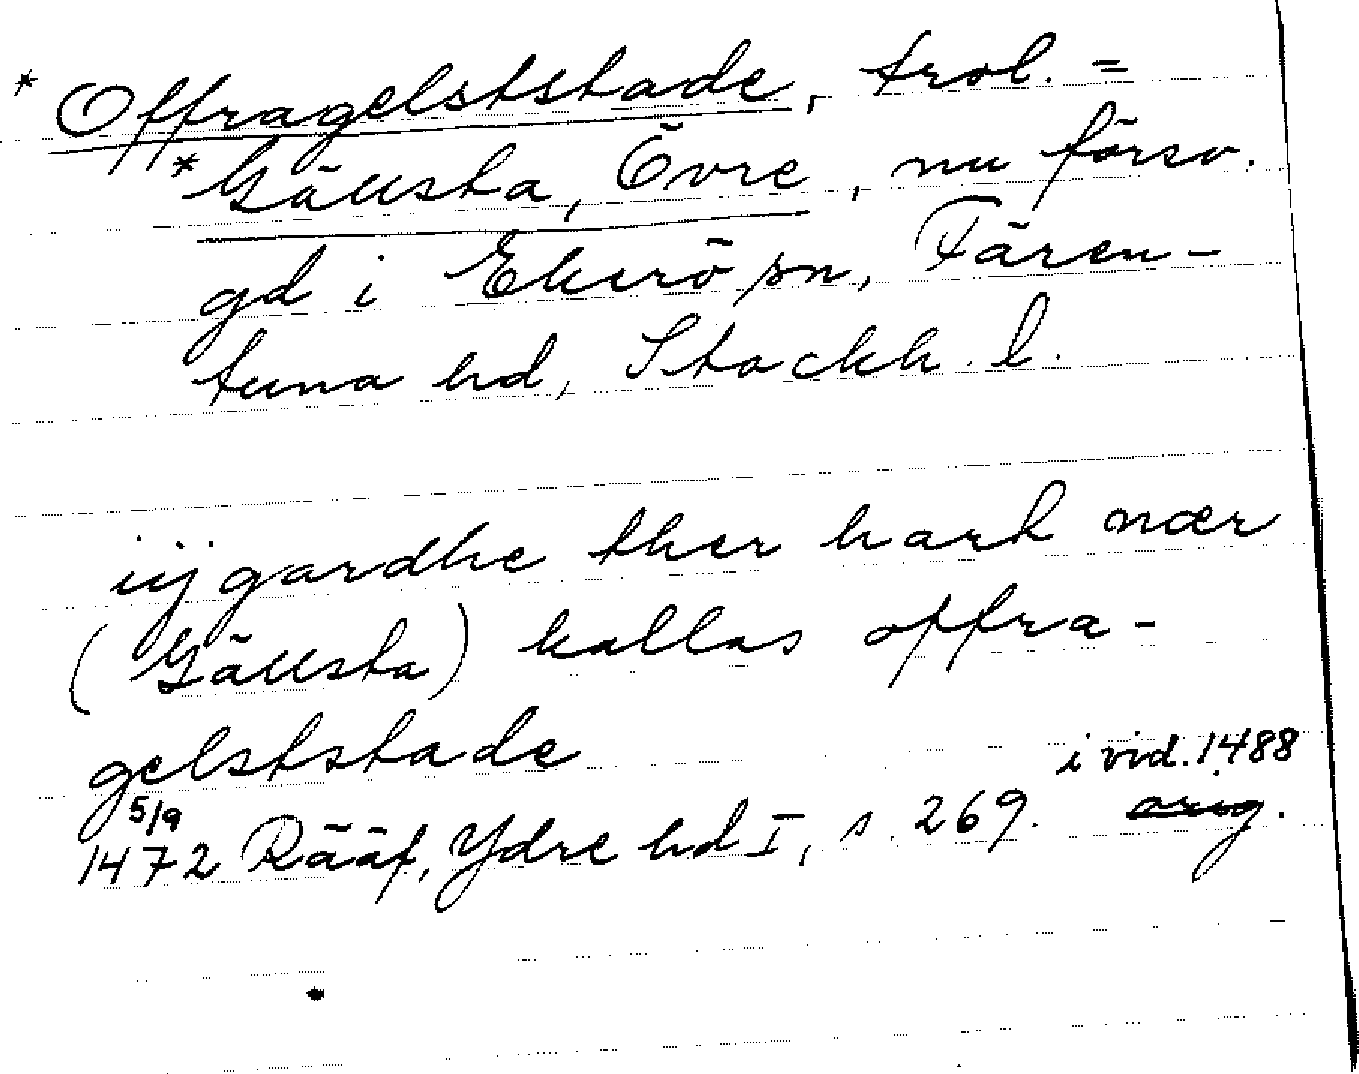 * Offragelststade, trol. =
* Gällsta, Övre, nu försv.
gd i Ekerö sn, Fären-
tuna hd, Stockh. l.
iij gardhe ther hart nær
(Gällsta) kallas offra-
gelststade
i vid. 1488
5/9
1472 Rääf, Ydre hd I, s. 269. orig.